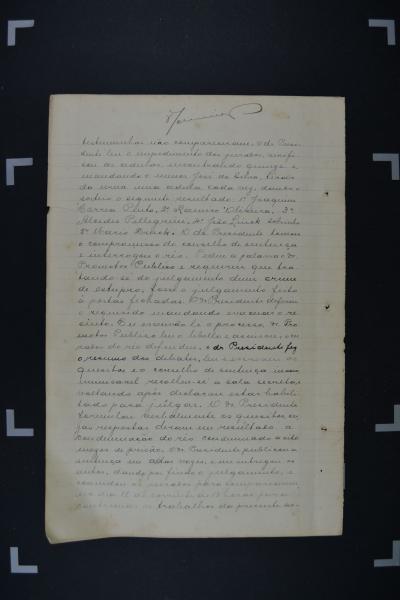 testimunhas não compareceram. O dr Presi-
dente leu o impedimento dos jurados, verifi-
cou as cedulas, encontrando quinze e
mandando o menor José da Silva, tirar
da urna uma cedula cada vez, dando o
sorteio o seguinte resultado: 1º Joaquim
Correa Pinto, 2º Ramiro Oliveira, 3º
Alcides Pellegrini, 4º João
5º Mario O dr Presidente tomou
o compromisso do conselho de sentença
e interrogou o réo. Pediu a palavra o dr
Promotor Publico e requereu que tra-
tando-se do julgamento dum crime
de estupro, fosse o julgamento feito
á portas fechadas. O Dr Presidente deferiu
o requerido mandando evacuar o re-
cinto. Eu escrivão li o processo, dr Pro-
motor Publico leu o libello e accusou, o
do réo defendeu, o dr Presidente fez
o resumo dos debates, leu e escreveu os
quesitos e o conselho de sentença
recolheu-se a sala secreta
voltando após declarar estar habili-
tado para julgar. O dr Presidente
formulou verbalmente os quesitos cu-
jas respostas deram em resultado a
condemnação do réo condemnado a oito
mezes de prisão. O dr Presidente publicou a
sentença em altas vozes, e me entregou os
autos, dando por findo o julgamento, e
convidou os jurados para comparecerem
no dia 12 do corrente ás horas para
os trabalhos da presente se-